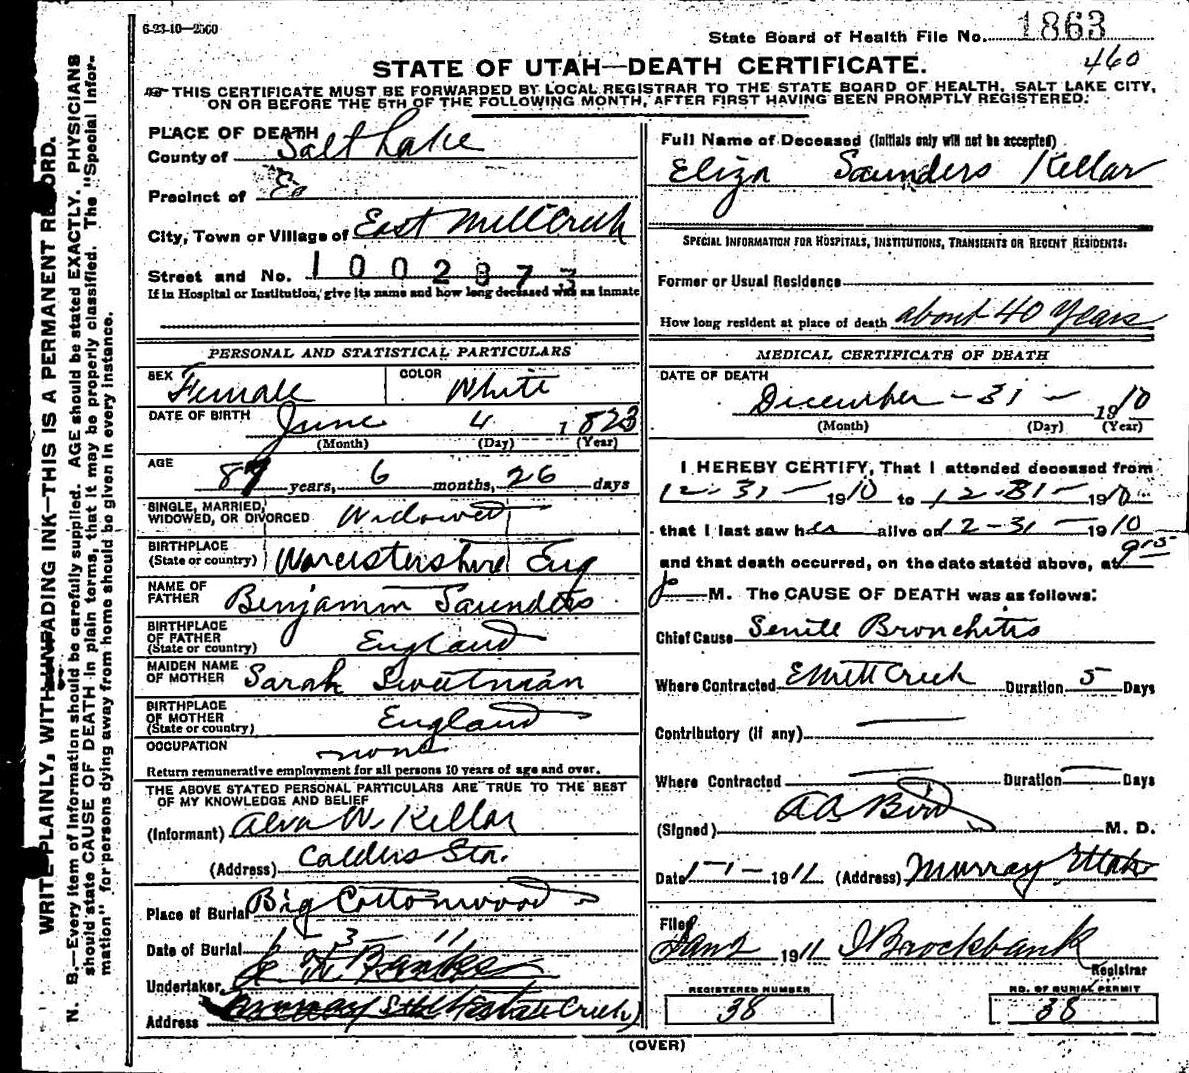 6-23-10—2500
State Board of Health File No. 1863
460
STATE OF UTAH—DEATH CERTIFICATE.
THIS CERTIFICATE MUST BE FORWARDED BY LOCAL REGISTRAR TO THE STATE BOARD OF HEALTH, SALT LAKE CITY,
ON OR BEFORE THE 5TH OF THE FOLLOWING MONTH, AFTER FIRST HAVING BEEN PROMPTLY REGISTERED.
WRITE PLAINLY, WITH UNFADING INK—THIS IS A PERMANENT RECORD.
N. B.—Every item of information should be carefully supplied. AGE should be stated EXACTLY. PHYSICIANS
should state CAUSE OF DEATH in plain terms, that it may be properly classified. The "Special Infor-
mation" for persons dying away from home should be given in every instance.
PLACE OF DEATH
County of Salt Lake
Precinct of Eo
City, Town or Village of East Mill Creek
Street and No. 1002873
If in Hospital or Institution, give its name and how long deceased was an inmate
PERSONAL AND STATISTICAL PARTICULARS
SEX Female COLOR White
DATE OF BIRTH June 4 1823
(Month) (Day) (Year)
AGE 87 years, 6 months, 26 days
SINGLE, MARRIED,
WIDOWED, OR DIVORCED Widowed
BIRTHPLACE
(State or country) Worcistershire Eng
NAME OF
FATHER Benjamin Saunders
BIRTHPLACE
OF FATHER
(State or country) England
MAIDEN NAME
OF MOTHER Sarah Sweetman
BIRTHPLACE
OF MOTHER
(State or country) England
OCCUPATION none
Return remunerative employment for all persons 10 years of age and over.
THE ABOVE STATED PERSONAL PARTICULARS ARE TRUE TO THE BEST
OF MY KNOWLEDGE AND BELIEF
(Informant) Alva W. Kellar
(Address) Calders Sta.
Place of Burial Big Cottonwood
Date of Burial 1 3 - 11
Undertaker
Address
Full Name of Deceased (Initials only will not be accepted)
Eliza Saunders Kellar
SPECIAL INFORMATION FOR HOSPITALS, INSTITUTIONS, TRANSIENTS OR RECENT RESIDENTS:
Former or Usual Residence
How long resident at place of death about 40 Years
MEDICAL CERTIFICATE OF DEATH
DATE OF DEATH
December - 31 - 1910
(Month) (Day) (Year)
I HEREBY CERTIFY, That I attended deceased from
12-31-1910 to 12-31-1910
that I last saw her alive on 12-31-1910
and that death occurred, on the date stated above, at 9 15
p M. The CAUSE OF DEATH was as follows:
Chief Cause Senile Bronchitis
Where Contracted E Mill Creek Duration 5 Days
Contributory (if any)
Where Contracted Duration Days
(Signed) AA Bird M. D.
Date 1-1-1911 (Address) Murray Utah
Filed
Jan 2 1911 I Brockbank
Registrar
REGISTERED NUMBER
38
NO. OF BURIAL PERMIT
38
(OVER)